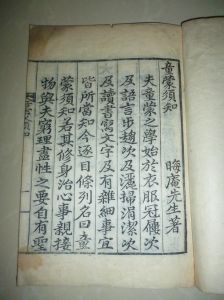 童蒙須知
晦庵先生著
夫童蒙之學始於衣服冠履次
及語言步趍次及灑掃涓潔次
及讀書寫文字及有雜細事宜
皆所當知今逐目條列名曰童
蒙須知若其修身治心事親接
物與夫窮理盡性之要自有聖